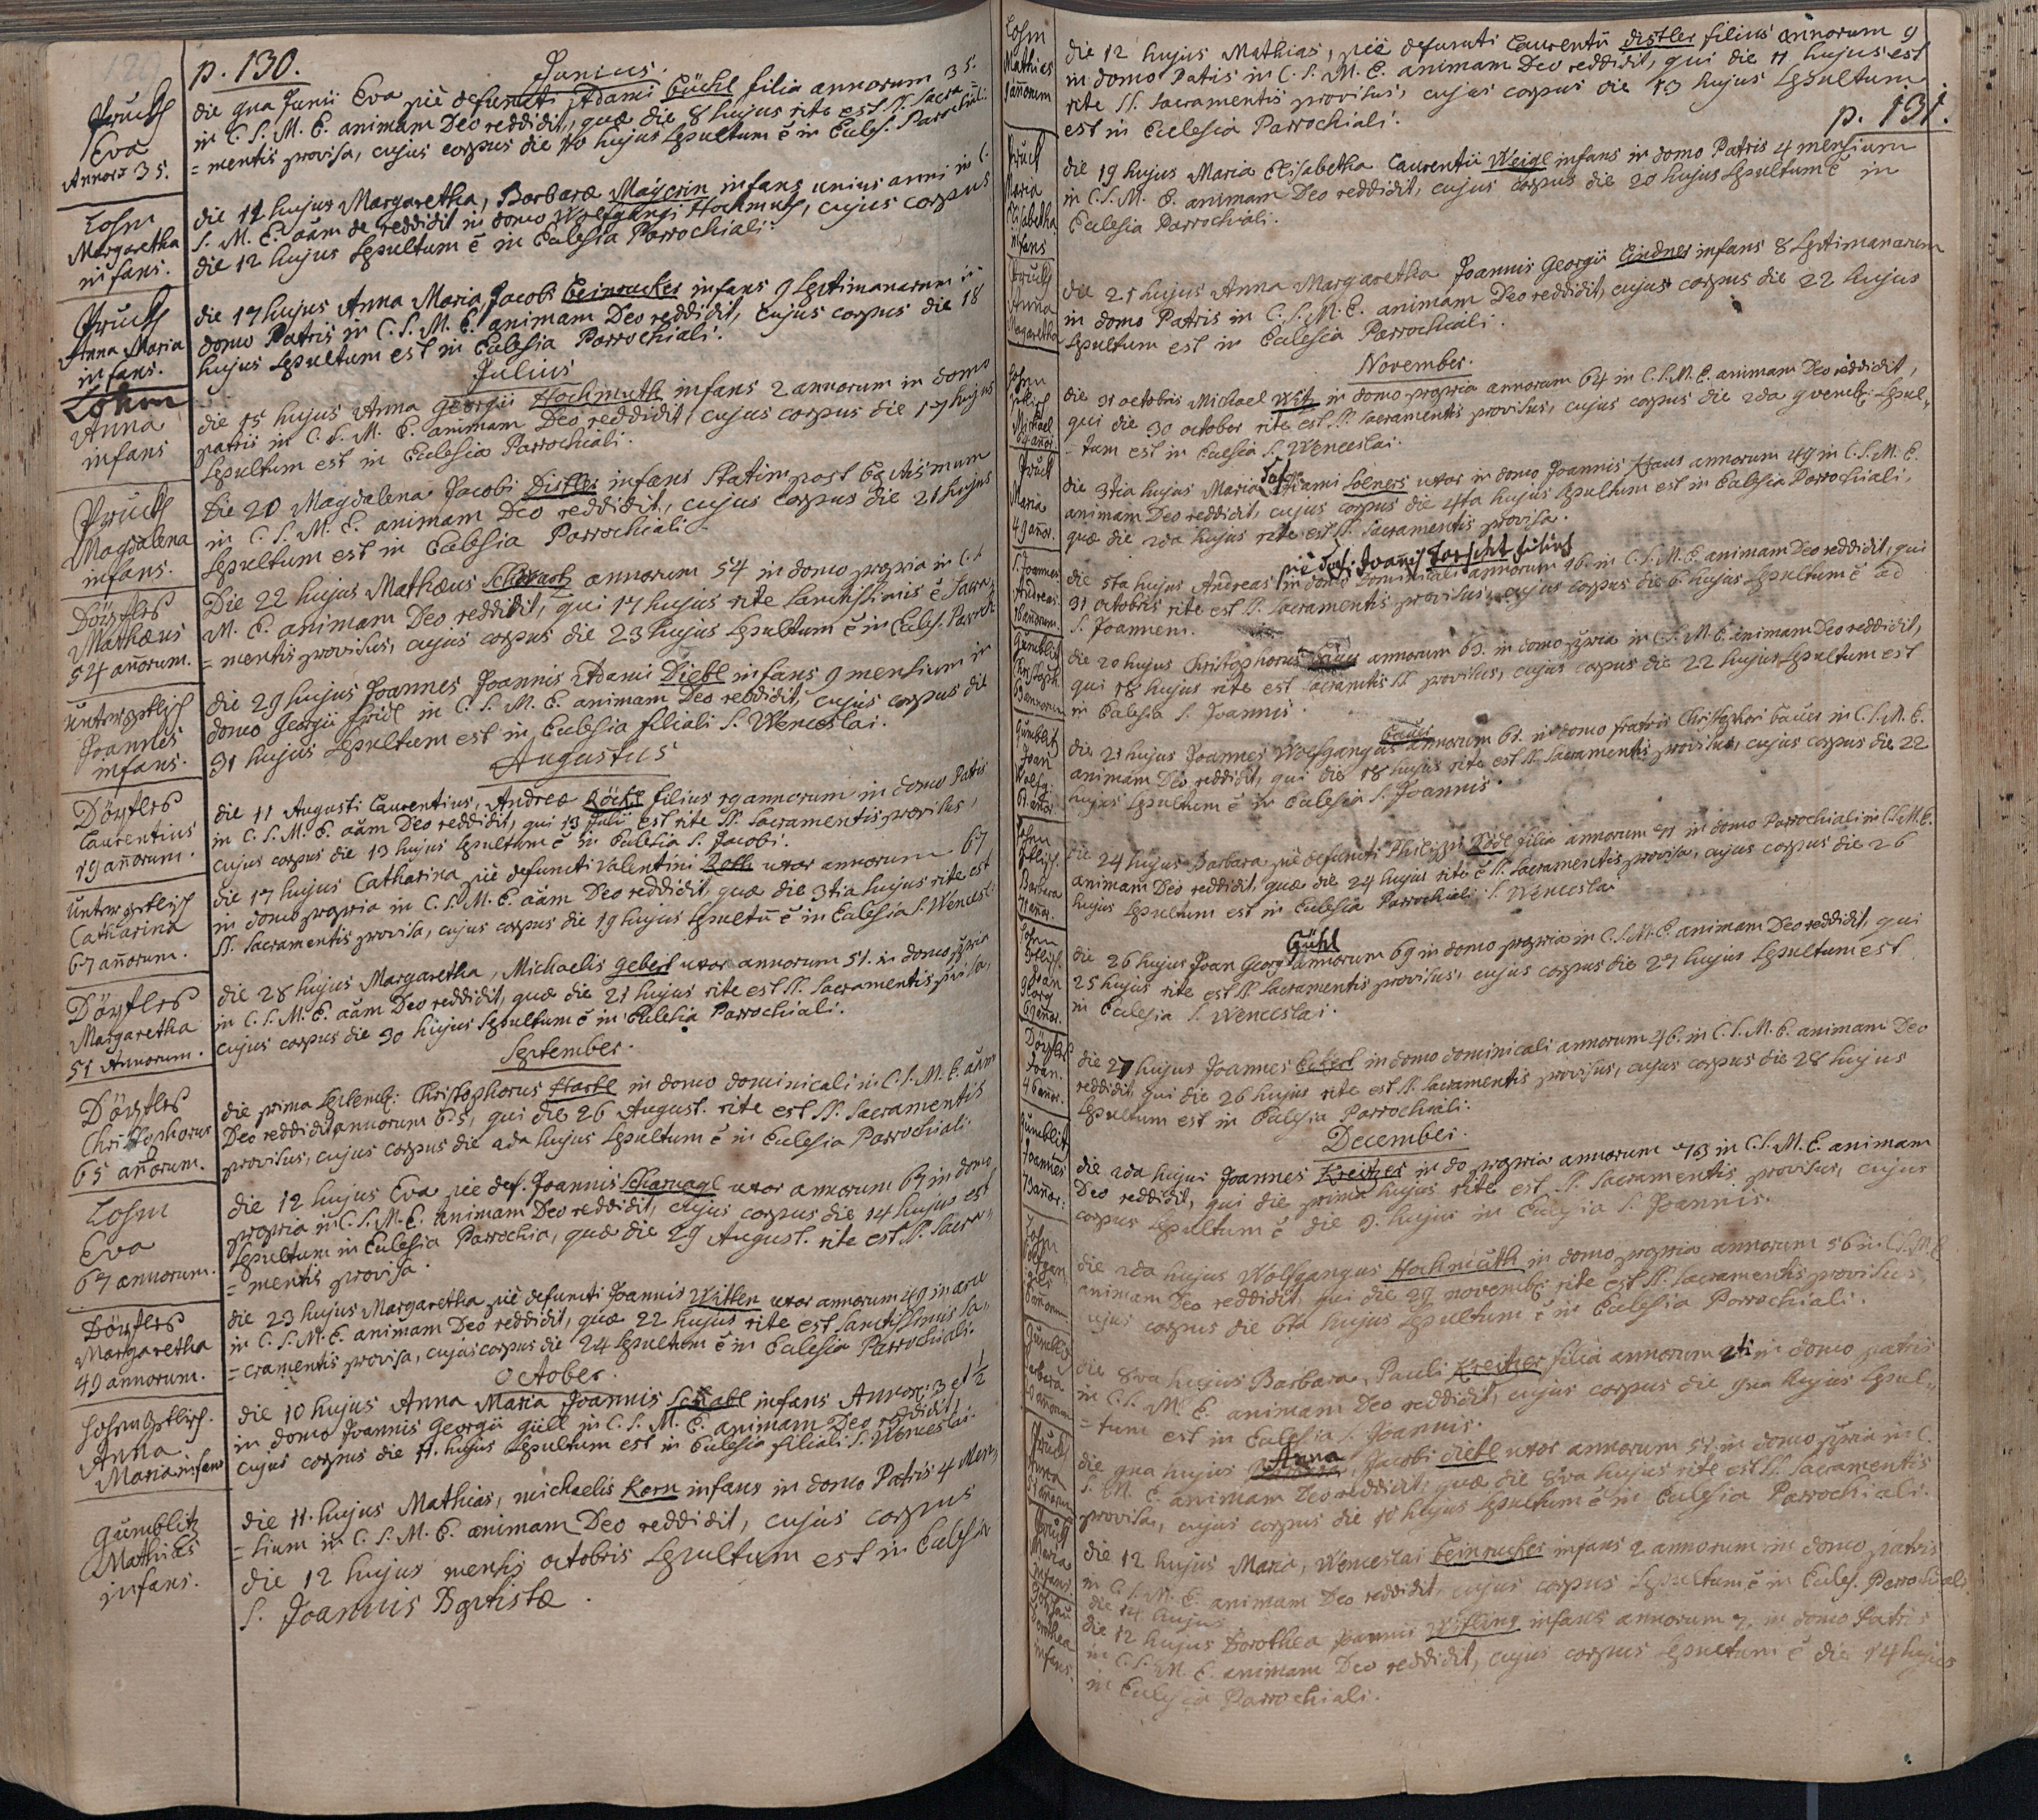 p. 130.
Junius.
Pruch
Eva
Annor. 35.
die 9na Junii Eva piè defuncti Adami Güchl filia annorum 35.
in C. S. M. E. animam Deo reddidit, quæ die 8 hujus rite est SS. Sacra
= mentis provisa, cujus corpus die 10 hujus sepultum ē in Eccles. Parrochiali.
Lohm
Margaretha
infans.
die 12 hujus Margaretha, Barbaræ Mayerin infans unius anni in C.
S. M. E. aām Deo reddidit in domo Wolfgangi Hochmuth, cujus corpus
die 12 hujus sepultum ē in Eclesia Parrochiali.
Pruch
Anna Maria
infans.
die 17 hujus Anna Maria Jacobi Beinrucker infans 9 septimanarum in
domo Patris in C. S. M. E. animam Deo reddidit, cujus corpus die 18
hujus sepultum est in Eclesia Parrochiali.
Julius
Lohm
Anna
infans
die 15 hujus Anna Georgii Hochmuth infans 2 annorum in domo
patris in C. S. M. E. animam Deo reddidit, cujus corpus die 17 hujus
sepultum est in Eclesia Parrochiali.
Pruch
Magdalena
infans.
Die 20 Magdalena Jacobi Distler infans statim post Baptismum
in C. S. M. E. animam Deo reddidit, cujus corpus die 21 hujus
sepultum est in Eclesia Parrochiali.
Döxtles
Mathæus
54 añorum.
Die 22 hujus Mathæus annorum 54 in domo propria in C. S.
M. E. animam Deo reddidit, qui 17 hujus rite Sanctissimis ē Sacra
= mentis provisus, cujus corpus die 23 hujus sepultum ē in Eccles. Parroch
Joannes
infans.
die 29 hujus Joannes Joannis Adami Diebl infans 9 mensium in
domo Georgii Fridl in C. S. M. E. animam Deo reddidit, cujus corpus die
31 hujus sepultum est in Eclesia filiali S. Wenceslai.
Augustus
Döxtles
Laurentius
19 añorum.
die 11 Augusti Laurentius, Andreæ Röckl filius 19 annorum in domo Patris
in C. S. M. E. aām Deo reddidit, qui 13 Julii est rite SS. Sacramentis provisus,
cujus corpus die 13 hujus sepultum ē in Eclesia S. Jacobi.
Catharina
67 añorum.
die 17 hujus Catharina piè defuncti Valentini uxor annorum 67
in domo propria in C. S. M. E. aām Deo reddidit, quæ die 3tia hujus rite est
SS. Sacramentis provisa, cujus corpus die 19 hujus sepultū ē in Eclesia S. Wences.
Döxtles
Margaretha
51 Annorum.
die 28 hujus Margaretha, Michaelis Geberl uxor annorum 51. in domo ppria
in C. S. M. E. aām Deo reddidit, quæ die 21 hujus rite est SS. Sacramentis pvisa,
cujus corpus die 30 hujus sepultum ē in Eclesia Parrochiali.
September.
Döxtles
Christophorus
65 añorum.
die prima Septemb: Christophorus Hartl in domo dominicali in C. S. M. E. aām
Deo reddidit annorum 65, qui die 26 August. rite est SS. Sacramentis
provisus, cujus corpus die 2da hujus sepultum ē in Eclesia Parrochiali.
Lohm
Eva
67 annorum.
die 12 hujus Eva piè def. Joannis Scharnagl uxor annorum 67 in domo
propria in C. S. M. E. animam Deo reddidit, cujus corpus die 14 hujus est
sepultum in Eclesia Parrochia, quæ die 29 August. rite est SS. Sacra
= mentis provisa.
Döxtles
Margaretha
49 annorum.
die 23 hujus Margaretha piè defuncti Joannis Witten uxor annorum 49 in
in C. S. M. E. animam Deo reddidit, quæ 22 hujus rite est sanctissimis Sa
= cramentis provisa, cujus corpus die 24 sepultum ē in Eclesia Parrochiali.
October.
Anna
Maria infans
die 10 hujus Anna Maria Joannis Schabl infans Annor: 3 et 1/2
in domo Joannis Georgii Güll in C. S. M. E. animam Deo reddidit,
cujus corpus die 11. hujus sepultum est in Eclesia filiali S. Wenceslai.
Gumblitz
Mathias
infans.
die 11. hujus Mathias, michaelis Korn infans in domo Patris 4 Men
= sium in C. S. M. E. animam Deo reddidit, cujus corpus
die 12 hujus mensis octobris sepultum est in Eclesia
S. Joannis Baptistæ.
p. 131.
Lohm
Mathies
9 añorum
die 12 hujus Mathias, piè defuncti Laurentii Distler filius annorum 9
in domo Patris in C. S. M. E. animam Deo reddidit, qui die 11 hujus est
rite SS. Sacramentis provisus, cujus corpus die 13 hujus sepultum
est in Eclesia Parrochiali.
Pruch
Maria
Elisabetha
infans
die 19 hujus Maria Elisabetha Laurentii Weigl infans in domo Patris 4 mensium
in C. S. M. E. animam Deo reddidit, cujus corpus die 20 hujus sepultum ē in
Eclesia Parrochiali.
Pruch
Anna
Margaretha
die 21 hujus Anna Margaretha Joannis Georgii Lindner infans 8 septimanarum
in domo Patris in C. S. M. E. animam Deo reddidit, cujus corpus die 22 hujus
sepultum est in Eclesia Parrochiali.
November.
Lohm
Michael
64 añor.
die 31 octobris Michael in domo propria annorum 64 in C. S. M. E. animam Deo reddidit,
qui die 30 october rite est SS. Sacramentis provisus, cujus corpus die 2da 9vemb: sepul
= tum est in Eclesia S. Wenceslai.
Pruch
Maria
49 añor.
die 3tia hujus Maria Adami Solners uxor in domo Joannis annorum 49 in C. S. M. E.
animam Deo reddidit, cujus corpus die 4ta hujus sepultum est in Eclesia Parrochiali,
quæ die 2da hujus rite est SS. Sacramentis provisa.
S. Joannes
Andreas
16 añorum.
piè def: Joannis filius
die 5ta hujus Andreas in domo dominicali annorum 16. in C. S. M. E. animam Deo reddidit, qui
31 octobris rite est SS. Sacramentis provisus, cujus corpus die 6 hujus sepultum ē ad
S. Joannem.
Gumblitz
Christoph
63 annorum
die 20 hujus Christophorus annorum 63. in domo ppria in C. S. M. E. animam Deo reddidit,
qui 18 hujus rite est Sacramtis SS. provisus, cujus corpus die 22 hujus sepultum est
in Eclesia S. Joannis.
Gumblitz
Joan
Wolfg:
61 añor.
die 21 hujus Joannes Wolfgangus Baur annorum 61. in domo fratris Christophori Baur in C. S. M. E.
animam Deo reddidit, qui die 18 hujus rite est SS. Sacramentis provisus, cujus corpus die 22
hujus sepultum ē in Eclesia S. Joannis.
Lohm
Barbara
71 añor.
die 24 hujus Barbara piè defuncti Philippi filia annorum 71 in domo Parrochiali in C. S. M. E.
animam Deo reddidit, quæ die 24 hujus rite ē SS. Sacramentis provisa, cujus corpus die 26
hujus sepultum est in Eclesia Parrochiali S. Wenceslai
Lohm
Joan
Georg
69 añor.
die 26 hujus Joan Georg Gühl annorum 69 in domo propria in C. S. M. E. animam Deo reddidit, qui
25 hujus rite est SS. Sacramentis provisus, cujus corpus die 27 hujus sepultum est
in Eclesia S. Wenceslai.
Döxtles
Joan.
46 añor.
die 27 hujus Joannes in domo dominicali annorum 46. in C. S. M. E. animam Deo
reddidit, qui die 26 hujus rite est SS. Sacramentis provisus, cujus corpus die 28 hujus
sepultum est in Eclesia Parrochiali.
December.
Gumblitz
Joannes
73 añor.
die 2da hujus Joannes Kreitzer in do propria annorum 73 in C. S. M. E. animam
Deo reddidit, qui die prima hujus rite est SS. Sacramentis provisus, cujus
corpus sepultum ē die 9. hujus in Eclesia S. Joannis.
Lohm
Wolfgan
gus
56 añorum
die 2da hujus Wolfgangus Hochmuth in domo propria annorum 56 in C. S. M. E.
animam Deo reddidit, qui die 29 novemb: rite est SS. Sacramentis provisus,
cujus corpus die 6ta hujus sepultum ē in Eclesia Parrochiali.
Gumblitz
Barbara
annorum
die 8va hujus Barbara, Pauli Kreitzer filia annorum in domo patris
in C. S. M. E. animam Deo reddidit, cujus corpus die 9na hujus sepul
= tum est in Eclesia S. Joannis.
Pruch
Anna
51 añorum
die 9na hujus Anna, Jacobi Diebl uxor annorum 51. in domo ppria in C.
S. M. E. animam Deo reddidit, quæ die 8va hujus rite est SS. Sacramentis
provisa, cujus corpus die 10 hujus sepultum ē in Eclesia Parrochiali.
Pruch
Maria
infans
die 12 hujus Maria, Wenceslai Beinrucker infans 2 annorum in domo patris
in C. S. M. E. animam Deo reddidit, cujus corpus sepultum ē in Eccles. Parrochiali
die 14 hujus
Dorothea
infans.
die 12 hujus Dorothea Joannis infans annorum 2. in domo Patris
in C. S. M. E. animam Deo reddidit, cujus corpus sepultum ē die 14 hujus
in Eclesia Parrochiali.